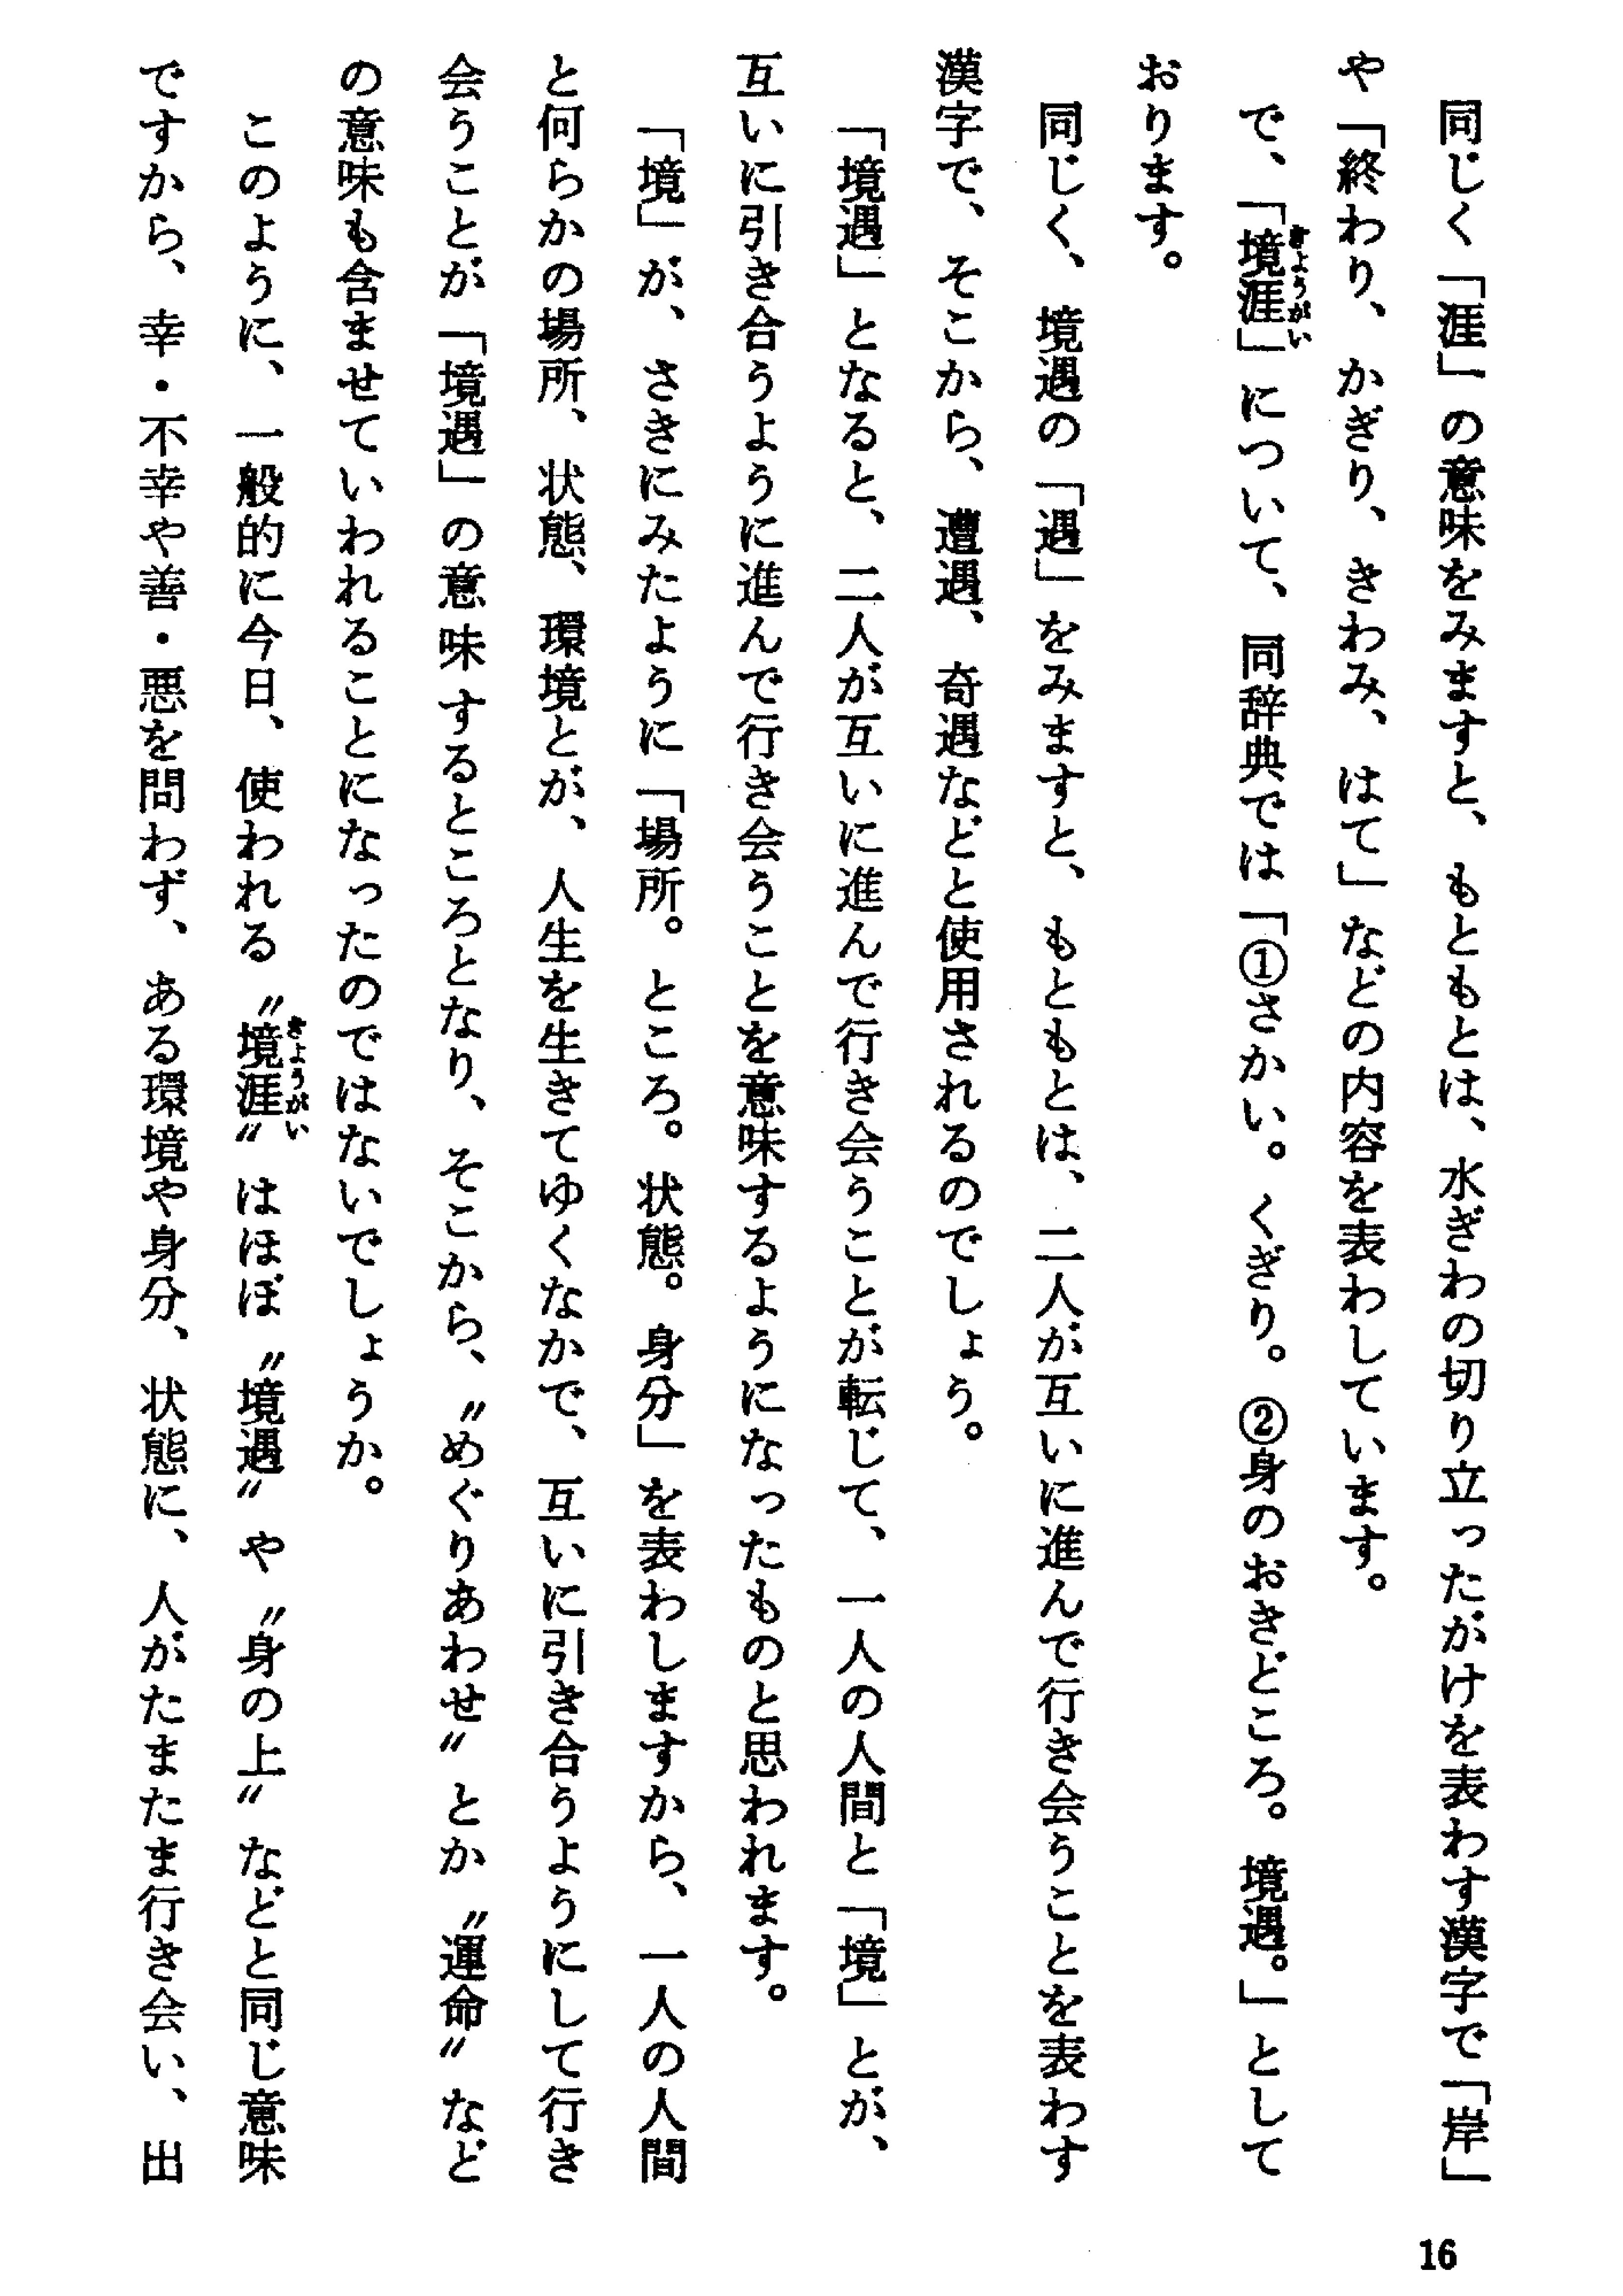 同じく「涯」の意味をみますと、もともとは、水ぎわの切り立ったがけを表わす漢字で「岸」
や「終わり、かぎり、きわみ、はて」などの内容を表わしています。
で、「境涯」について、同辞典では「①さかい。くぎり。②身のおきどころ。境遇。」として
きょうがい
おります。
同じく、境遇の「遇」をみますと、もともとは、二人が互いに進んで行き会うことを表わす
漢字で、そこから、遭遇、奇遇などと使用されるのでしょう。
「境遇」となると、二人が互いに進んで行き会うことが転じて、一人の人間と「境」とが、
互いに引き合うように進んで行き会うことを意味するようになったものと思われます。
「境」が、さきにみたように「場所。ところ。状態。身分」を表わしますから、一人の人間
と何らかの場所、状態、環境とが、人生を生きてゆくなかで、互いに引き合うようにして行き
会うことが「境遇」の意味するところとなり、そこから、〝めぐりあわせ〟とか〝運命〟など
の意味も含ませていわれることになったのではないでしょうか。
このように、一般的に今日、使われる〝境涯〟はほぼ〝境遇〟や〝身の上〟などと同じ意味
きょうがい
ですから、幸・不幸や善・悪を問わず、ある環境や身分、状態に、人がたまたま行き会い、出
16